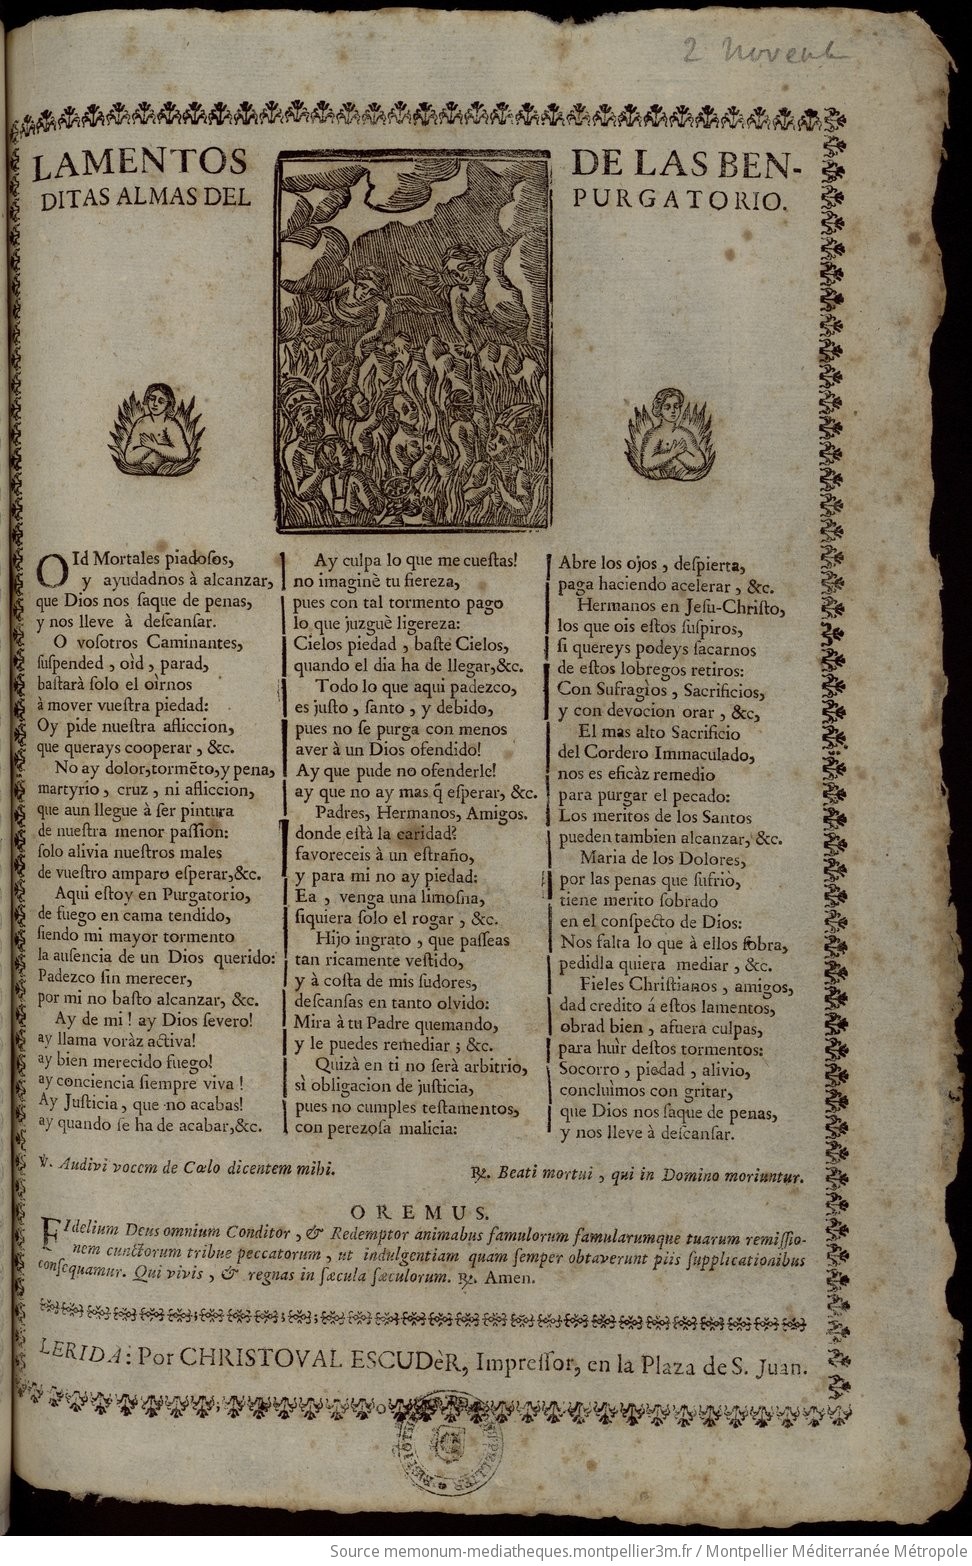 2 Novemb
LAMENTOS DE LAS BEN-
DITAS ALMAS DEL PURGATORIO.
OId Mortales piadoſos,
y ayudadnos à alcanzar,
que Dios nos ſaque de penas,
y nos lleve à deſcanſar.
O voſotros Caminantes,
ſuſpended, oìd, parad,
baſtarà ſolo el oìrnos
à mover vueſtra piedad:
Oy pide nueſtra afliccion,
que querays cooperar, &c.
No ay dolor, tormẽto, y pena,
martyrio, cruz, ni afliccion,
que aun llegue à ſer pintura
de nueſtra menor paſſion:
ſolo alivia nueſtros males
de vueſtro amparo eſperar, &c.
Aqui eſtoy en Purgatorio,
de fuego en cama tendido,
ſiendo mi mayor tormento
la auſencia de un Dios querido:
Padezco ſin merecer,
por mi no baſto alcanzar, &c.
Ay de mi! ay Dios ſevero!
ay llama voràz activa!
ay bien merecido fuego!
ay conciencia ſiempre viva!
Ay Juſticia, que no acabas!
ay quando ſe ha de acabar, &c.
Ay culpa lo que me cueſtas!
no imaginè tu fiereza,
pues con tal tormento pago
lo que juzguè ligereza:
Cielos piedad, baſte Cielos,
quando el dia ha de llegar, &c.
Todo lo que aqui padezco,
es juſto, ſanto, y debido,
pues no ſe purga con menos
aver à un Dios ofendido!
Ay que pude no ofenderle!
ay que no ay mas q̃ eſperar, &c.
Padres, Hermanos, Amigos.
donde eſtà la caridad?
favoreceis à un eſtraño,
y para mi no ay piedad:
Ea, venga una limoſna,
ſiquiera ſolo el rogar, &c.
Hijo ingrato, que paſſeas
tan ricamente veſtido,
y à coſta de mis ſudores,
deſcanſas en tanto olvido:
Mira à tu Padre quemando,
y le puedes remediar; &c.
Quizà en ti no ſerà arbitrio,
sì obligacion de juſticia,
pues no cumples teſtamentos,
con perezoſa malicia:
Abre los ojos, deſpierta,
paga haciendo acelerar, &c.
Hermanos en Jeſu-Chriſto,
los que ois eſtos ſuſpiros,
ſi quereys podeys ſacarnos
de eſtos lobregos retiros:
Con Sufragìos, Sacrificios,
y con devocion orar, &c,
El mas alto Sacrificio
del Cordero Immaculado,
nos es eficàz remedio
para purgar el pecado:
Los meritos de los Santos
pueden tambien alcanzar, &c.
Maria de los Dolores,
por las penas que ſufriò,
tiene merito ſobrado
en el conſpecto de Dios:
Nos falta lo que à ellos ſobra,
pedidla quiera mediar, &c.
Fieles Chriſtianos, amigos,
dad credito á eſtos lamentos,
obrad bien, afuera culpas,
para huìr deſtos tormentos:
Socorro, piedad, alivio,
concluìmos con gritar,
que Dios nos ſaque de penas,
y nos lleve à deſcanſar.
℣. Audivi vocem de Cœlo dicentem mihi. ℟. Beati mortui, qui in Domino moriuntur.
OREMUS.
FIdelium Deus omnium Conditor, & Redemptor animabus famulorum famularumque tuarum remiſſio-
nem cunctorum tribue peccatorum, ut indulgentiam quam ſemper obtaverunt piis ſupplicationibus
conſequamur. Qui vivis, & regnas in ſæcula ſæculorum. ℟. Amen.
LERIDA: Por CHRISTOVAL ESCUDèR, Impreſſor, en la Plaza de S. Juan.
Source memonum-mediatheques.montpellier3m.fr / Montpellier Méditerranée Métropole